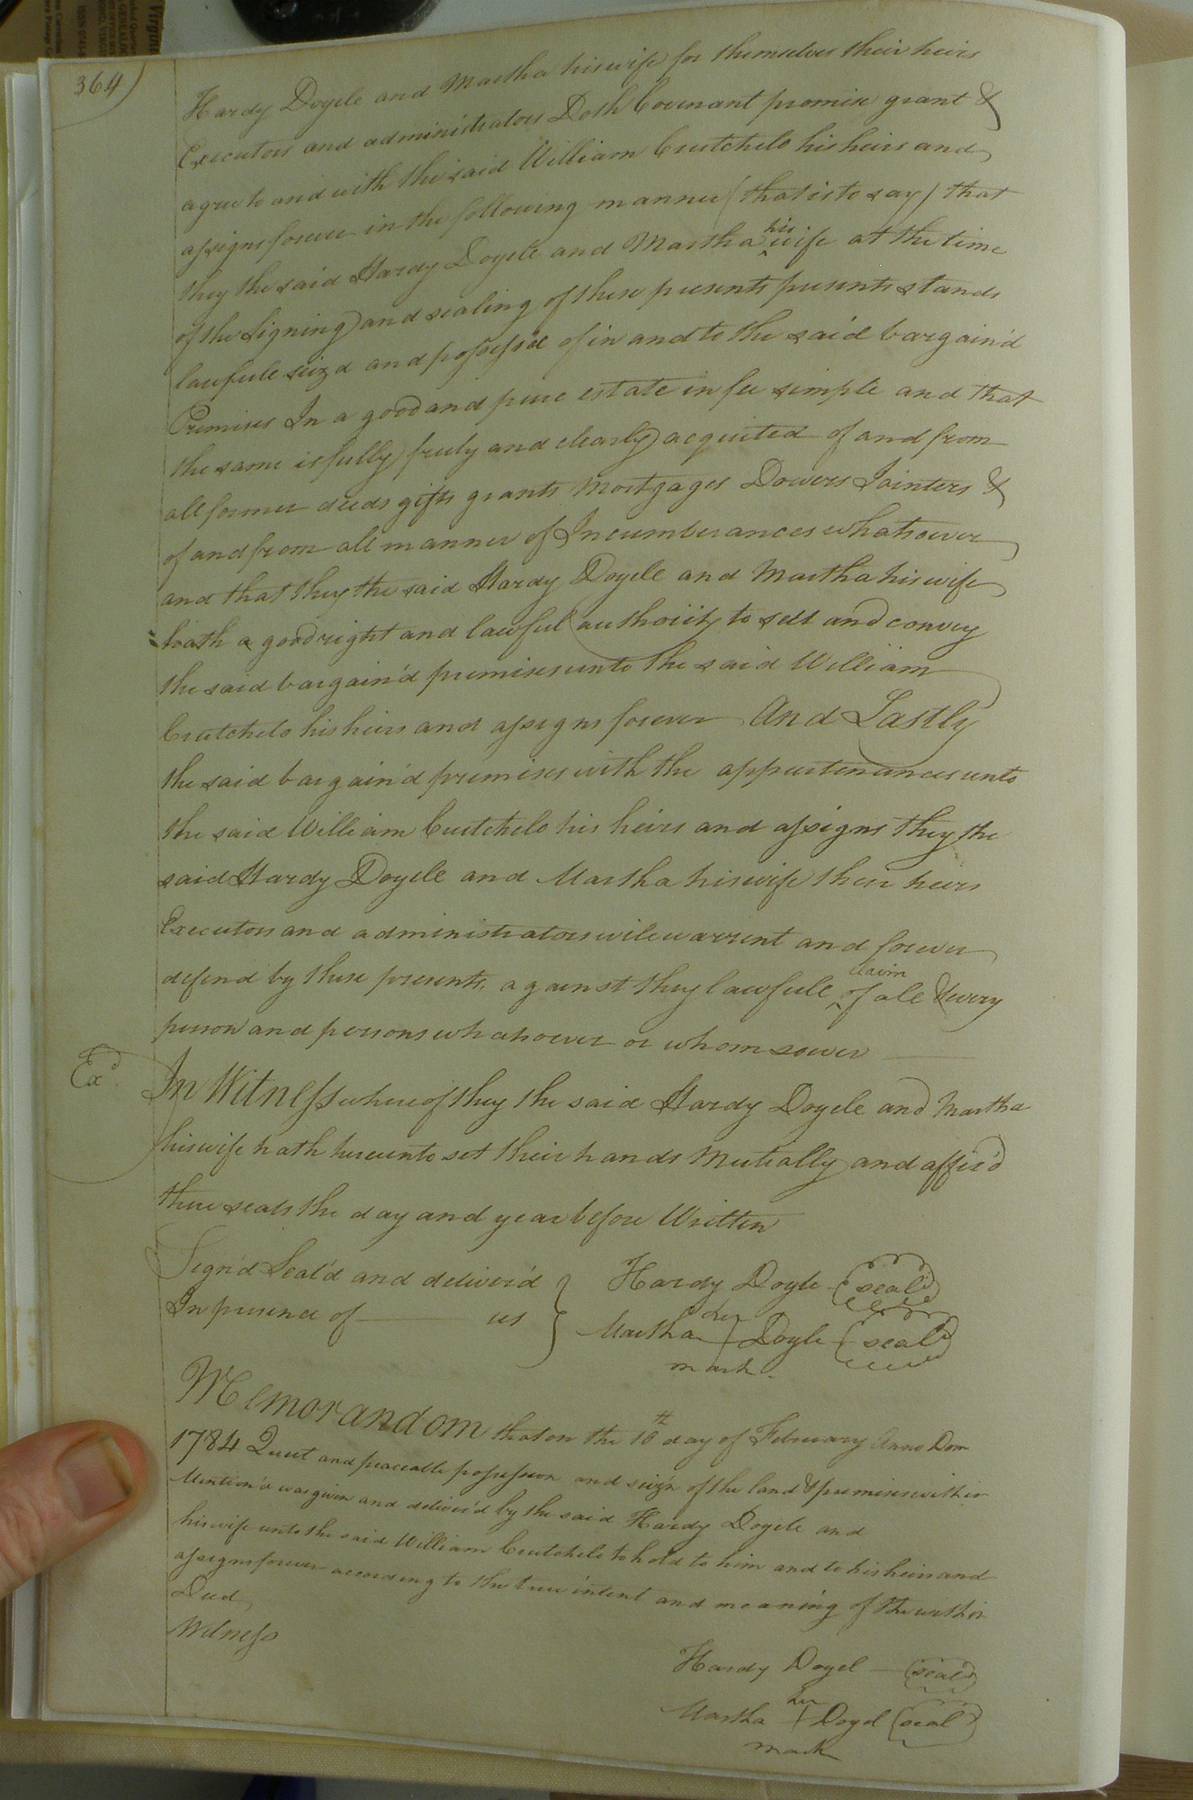 364)
Hardy Doyele and Martha his wife for themselves their heirs
Executors and administrators Doth Covenant promise grant &
agree to and with the said William Crutchelo his heirs and
assigns forever in the following manner (that is to say) that
they the said Hardy Doyele and Martha his wife at the time
of the Signing and sealing of these presents presents stands
lawfule seizd and possess'd of in and to the said bargain'd
Premises In a good and pure estate in fee simple and that
the same is fully freely and clearly acquited of and from
all former deeds gifts grants Mortgages Dowers Jointers &
of and from all manner of Incumberances whatsoever
and that they the said Hardy Doyele and Martha his wife
hoath a good right and lawful authority to sell and convey
the said bargain'd premises unto the said William
Crutchelo his heirs and assigns forever And Lastly
the said bargain'd premises with the appurtenances unto
the said William Crutchelo his heirs and assigns they the
said Hardy Doyele and Martha his wife their heirs
Executors and administrators wile warrent and forever
defend by these presents, against they lawfule claim of ale & every
person and persons whatsoever or whomsoever
Exd
In Witness whereof they the said Hardy Doyele and Martha
his wife hath hereunto set their hands Mutially and affix'd
there seals the day and year before Written
Sign'd Seal'd and deliver'd
In presence of us
Hardy Doyle (seal)
Martha her Doyle (seal)
mark
Memorandom that on the 10th day of February Anno Dom
1784 Quiet and peaceable possession and seizn of the land & premises within
Mention'd was given and deliver'd by the said Hardy Doyele and
his wife unto the said William Crutchelo to hold to him and to his heirs and
assigns forever according to the true intent and meaning of the within
Deed
Witness
Hardy Doyel (seal)
Martha her Doyel (seal)
mark